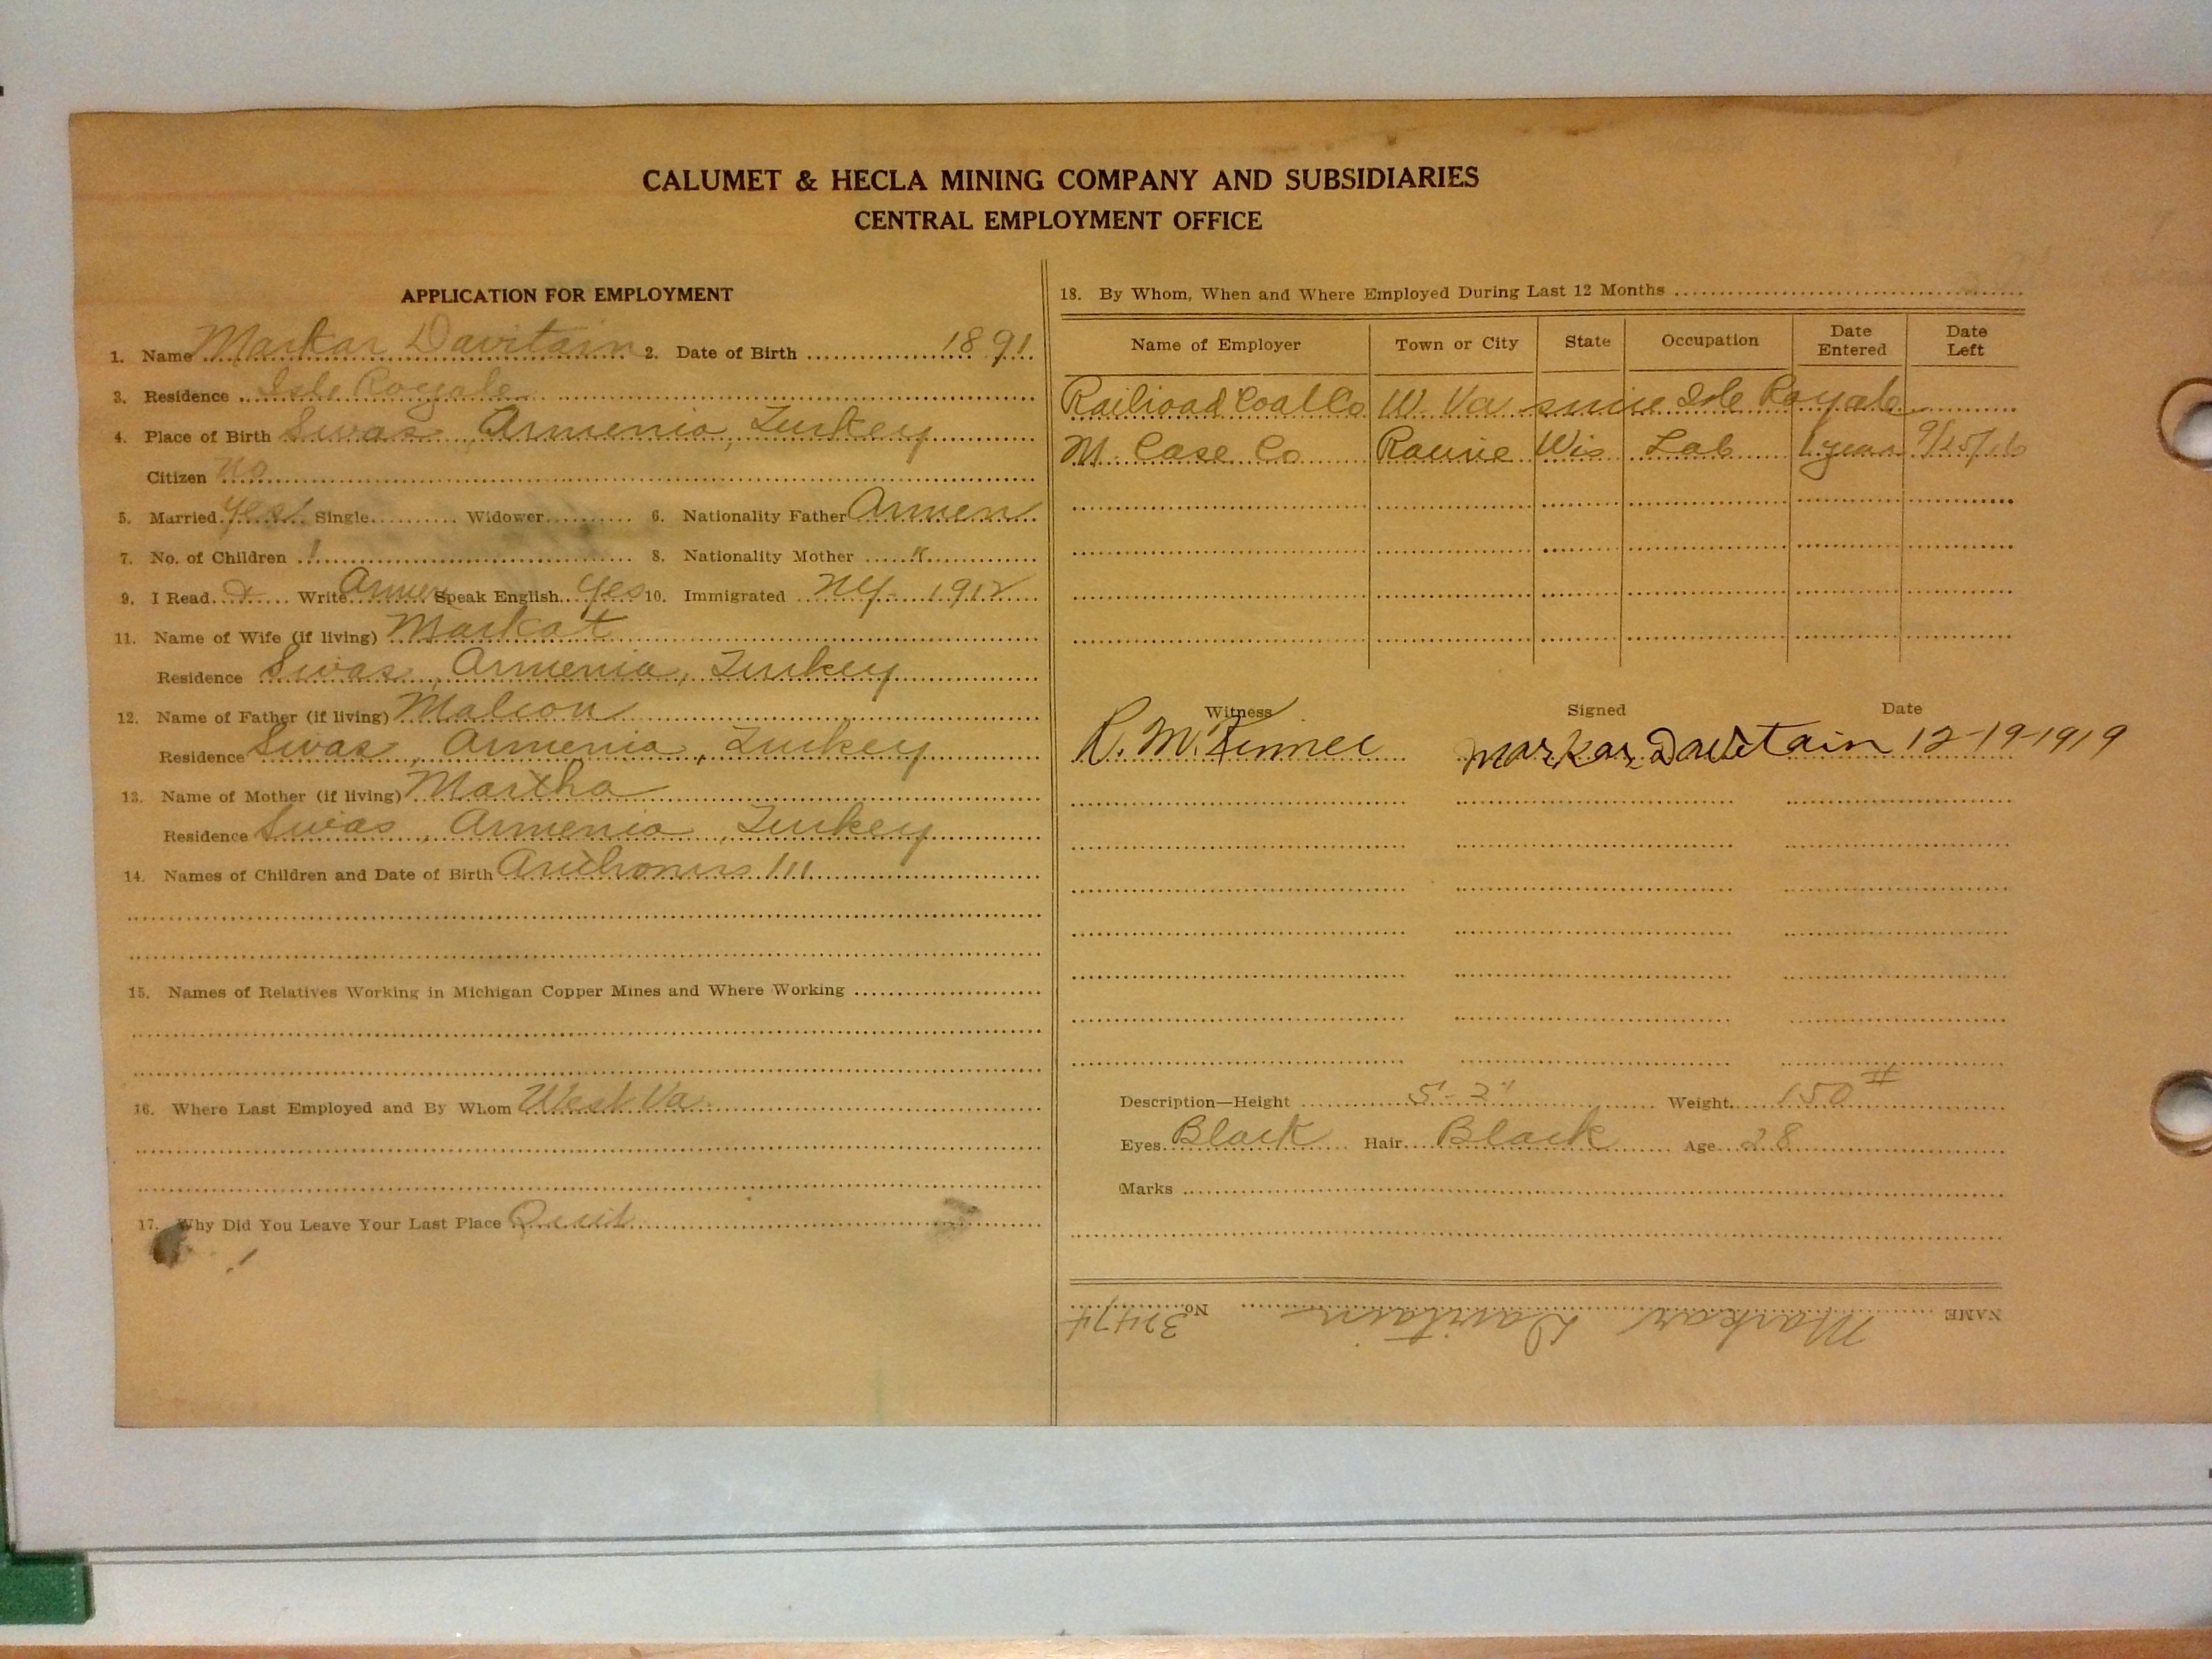 CALUMET & HECLA MINING COMPANY AND SUBSIDIARIES
CENTRAL EMPLOYMENT OFFICE
APPLICATION FOR EMPLOYMENT
1. Name Markar Davitain 2. Date of Birth 1891
3. Residence Isle Royale
4. Place of Birth Sivas, Armenia, Turkey
Citizen No
5. Married Yes Single Widower 6. Nationality Father Armen
7. No. of Children 1 8. Nationality Mother "
9. I Read & Write Armen Speak English Yes 10. Immigrated NY - 1912
11. Name of Wife (if living) Markat
Residence Sivas, Armenia, Turkey
12. Name of Father (if living) Malcon
Residence Sivas, Armenia, Turkey
13. Name of Mother (if living) Martha
Residence Sivas, Armenia, Turkey
14. Names of Children and Date of Birth
15. Names of Relatives Working in Michigan Copper Mines and Where Working
16. Where Last Employed and By Whom West Va.
17. Why Did You Leave Your Last Place Quit
18. By Whom, When and Where Employed During Last 12 Months
Name of Employer Town or City State Occupation Date Entered Date Left
Railroad Coal Co W. Va Isle Royale
M. Case Co Racine Wis Lab 1 year
Witness Signed Date
Markar Davitain 12-19-1919
Description—Height 5-2" Weight 150 #
Eyes Black Hair Black Age 28
Marks
NAME Markar Davitain No. 32474